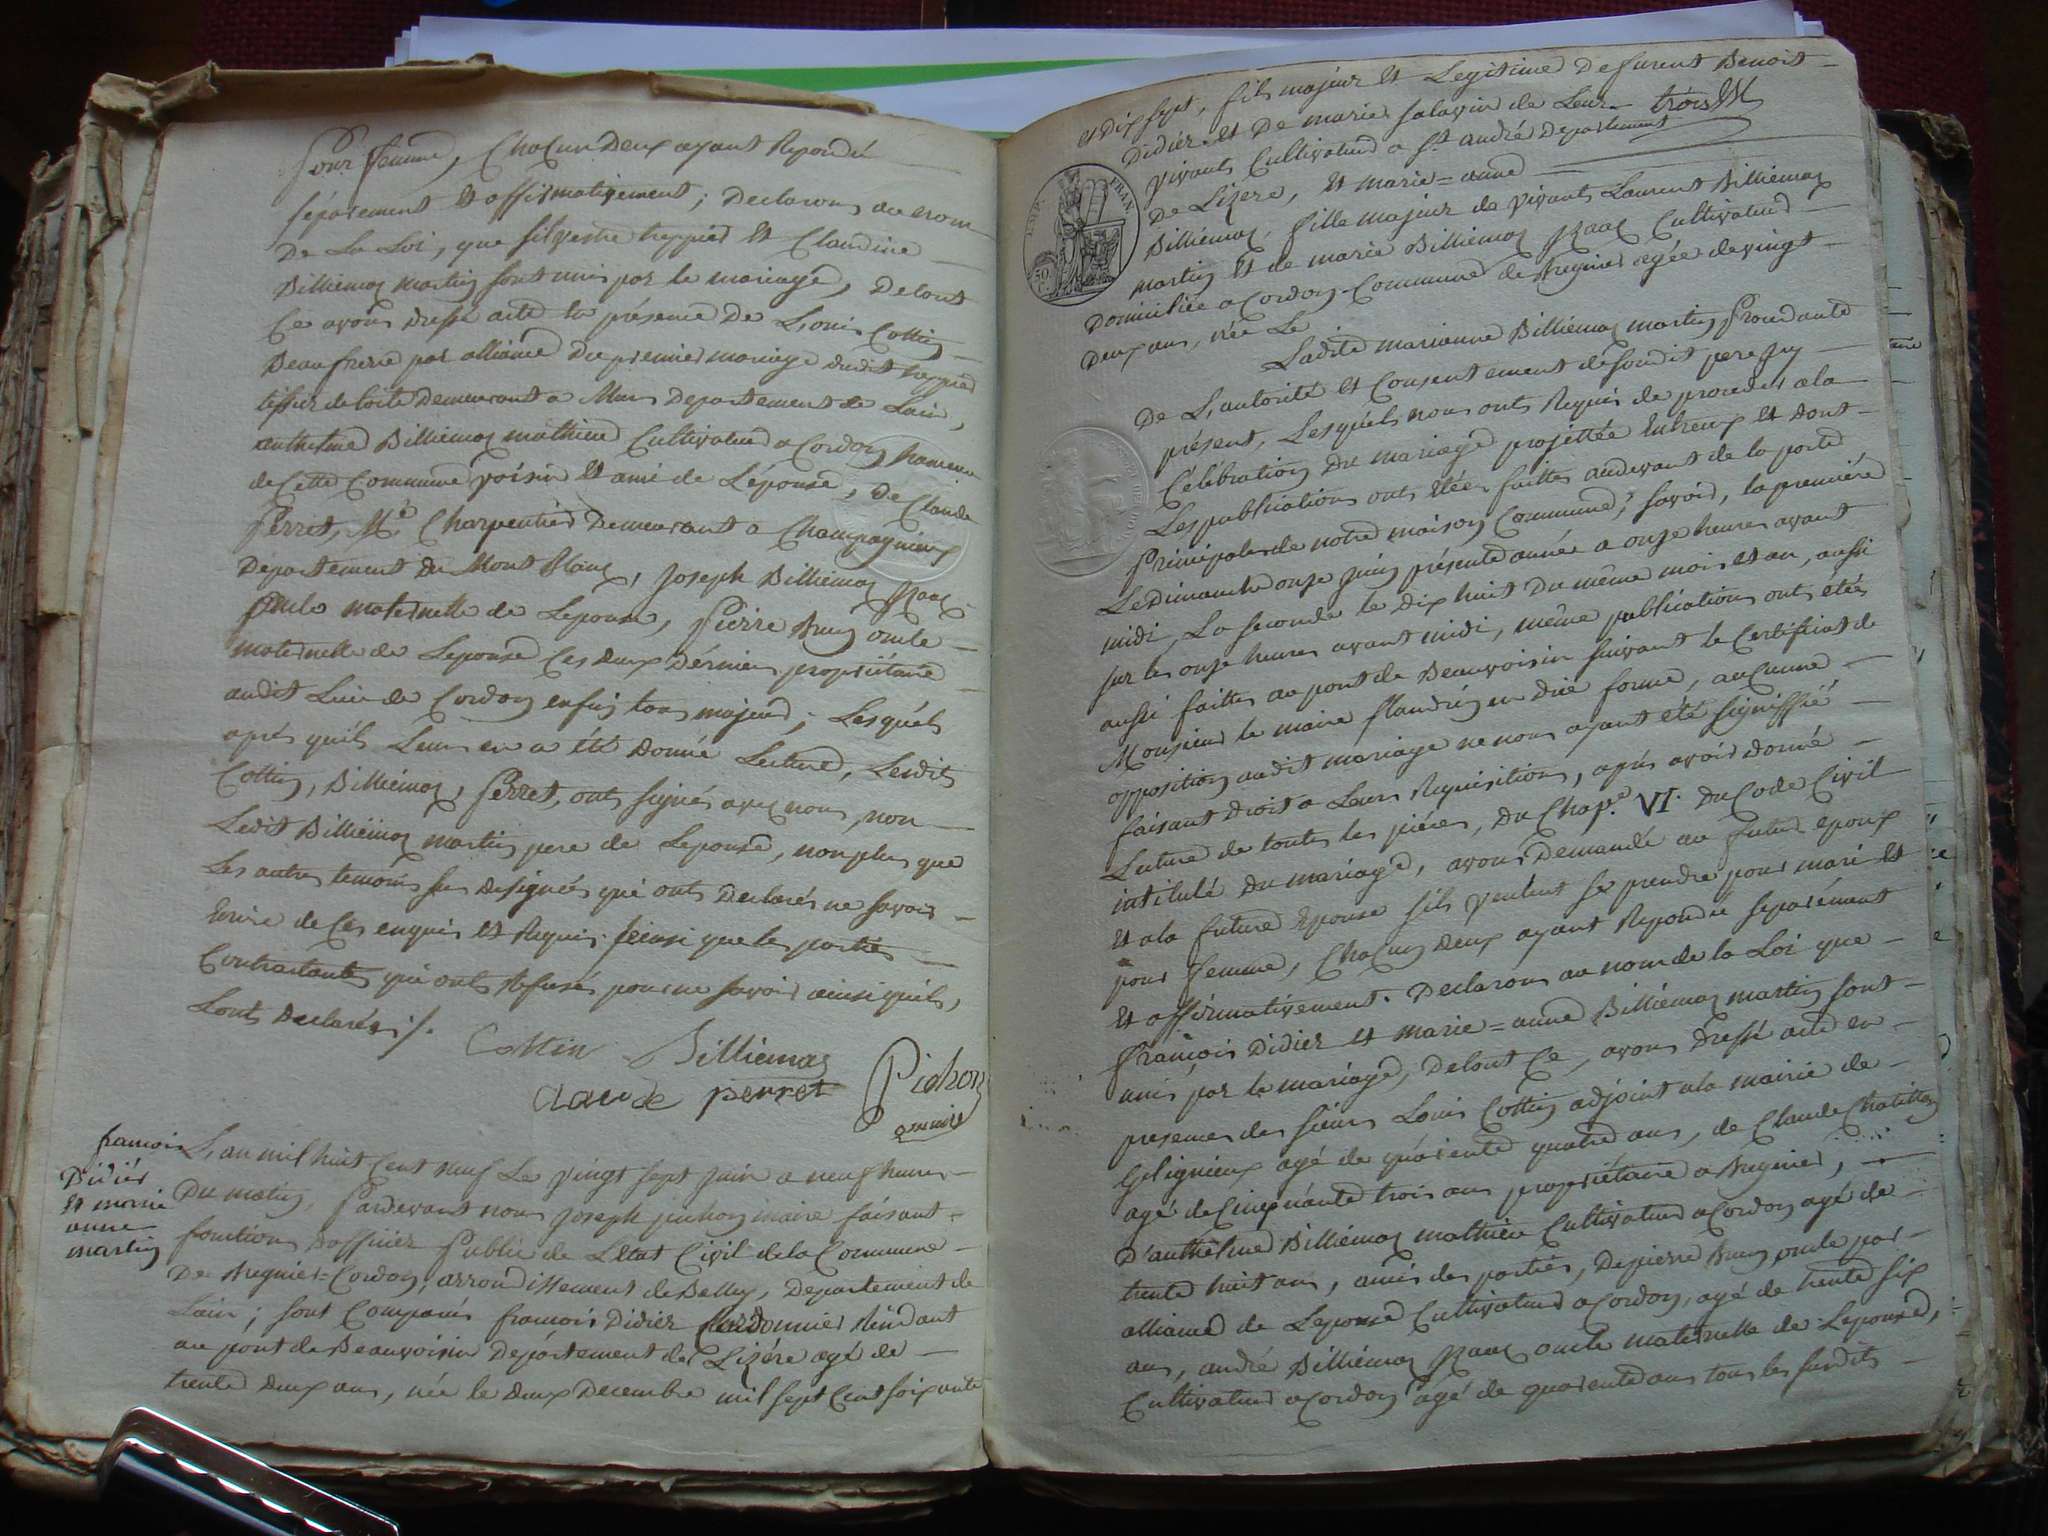 pour femme, Chacun Deux ayant Repondu
séparement Et affirmativement; Declarons au nom
De La Loi, que silvestre treppier Et Claudine
Billiémaz martin sont unis par le mariage, De tout
Ce avons dressé acte En présence De Louis Cottin
Beaufrere par alliance du premier mariage dudit treppier
tissier de toile Demeurant a Murs Departement de Lain,
anthelme Billiémaz mathieu Cultivateur a Cordon hameau
de Cette Commune voisin Et ami de L'épouse, de Claude
Perret, Me Charpentier Demeurant a Champagnieux
Département du Mont Blanc, Joseph Billiémaz Ràaz
oncle maternelle de Lepouse, Pierre Brun oncle
maternelle de Lepouse Ces deux Dérniers propriétaire
audit Lieu de Cordon enfin tous majeurs; Lesquels
aprés quils Leurs en a été Donné Lecture, Lesdits
Cottin, Billiémaz, Perret, onts signés avec nous, non
Ledit Billiémaz martin pere de Lepouse, non plus que
Les autres temoins sus designés qui onts Declarés ne savoir
Ecrire de Ces enquis Et Requis. ainsi que les parties
Contractants qui onts Refusés pour ne savoir ainsi quils,
Lonts Declarés ./.
Cottin Billiemaz
claude perret Pichon
maire
francois
Didiér
Et marie
anne
martin
L'an mil huit Cent neuf Le vingt sept Juin a neuf heures
Du matin, Pardevant nous Joseph pichon maire faisant
fonctions Dofficier Public de L'Etat Civil de la Commune
De Bregnier=Cordon, arrondissement de Belley, Departement de
Lain; sont Comparus francois Didier Cordonnier Résidant
au pont de Beauvoisin Département de Lizére agé de
trente deux ans, née le deux Decembre mil sept Cent soixante
et Dix sept, fils majeur Et Legitime De furent Benoit
Didier Et De marie salavin de Leur trois
vivants Cultivateur a St. andré Departement
De Lizere, Et marie=anne
Billiémaz, fille majeur de vivants Laurent Billiémaz
martin Et de marie Billiémaz Raaz Cultivateurs
Domiciliée a Cordon Commune de Bregnier agée de vingt
Deux ans, née Le
Ladite marianne Billiémaz martin Procedante
De L'autorité Et Consentement désondit pere Icy
présent, Lesquels nous onts Requis de proceder a la
Célébration Du mariage projettée Entreux Et dont
Les publications onts étées faittes audevant de la porte
Principale de notre maison Commune; savoir, la premiére
Le Dimanche onze Juin présente année a onze heures avant
midi, La seconde le dix huit Du même mois Et an, aussi
sur les onze heures avant midi, même publications onts étés
aussi faittes au pont de Beauvoisin suivant le Certificat de
Monsieur le maire flandrin en due forme, aucunne
opposition audit mariage ne nous ayant été signiffié
faisant Droit a Leurs Requisitions, aprés avoir donné
Lecture de toutes les piéces, Du Chape. VI. Du Code Civil
intitulé du mariage, avons Demandé au futur epoux
Et a la future Epouse sils veulent se prendre pour mari Et
pour femme, Chacun Deux ayant Repondu separément
Et affirmativement. Declarons au nom de la Loi que
françois Didier Et marie=anne Billiémaz martin sont
unis par le mariage, De tout Ce, avons dressé acte en
presence des sieurs Louis Cottin adjoint a la mairie de
Gelignieux agé de quarente quatre ans, de Claude Chatillon
agé de Cinquante trois ans propriétaire a Bregnier,
D'anthelme Billiémaz mathieu Cultivateur a Cordon agé de
trente huit ans, amis des parties, De pierre Brun oncle par
alliance de Lepouse Cultivateur a Cordon, agé de trente six
ans, andré Billiémaz Raaz oncle maternelle de Lepouse,
Cultivateur a Cordon agé de quarente ans tous les susdits
EMP. FRAN.
50